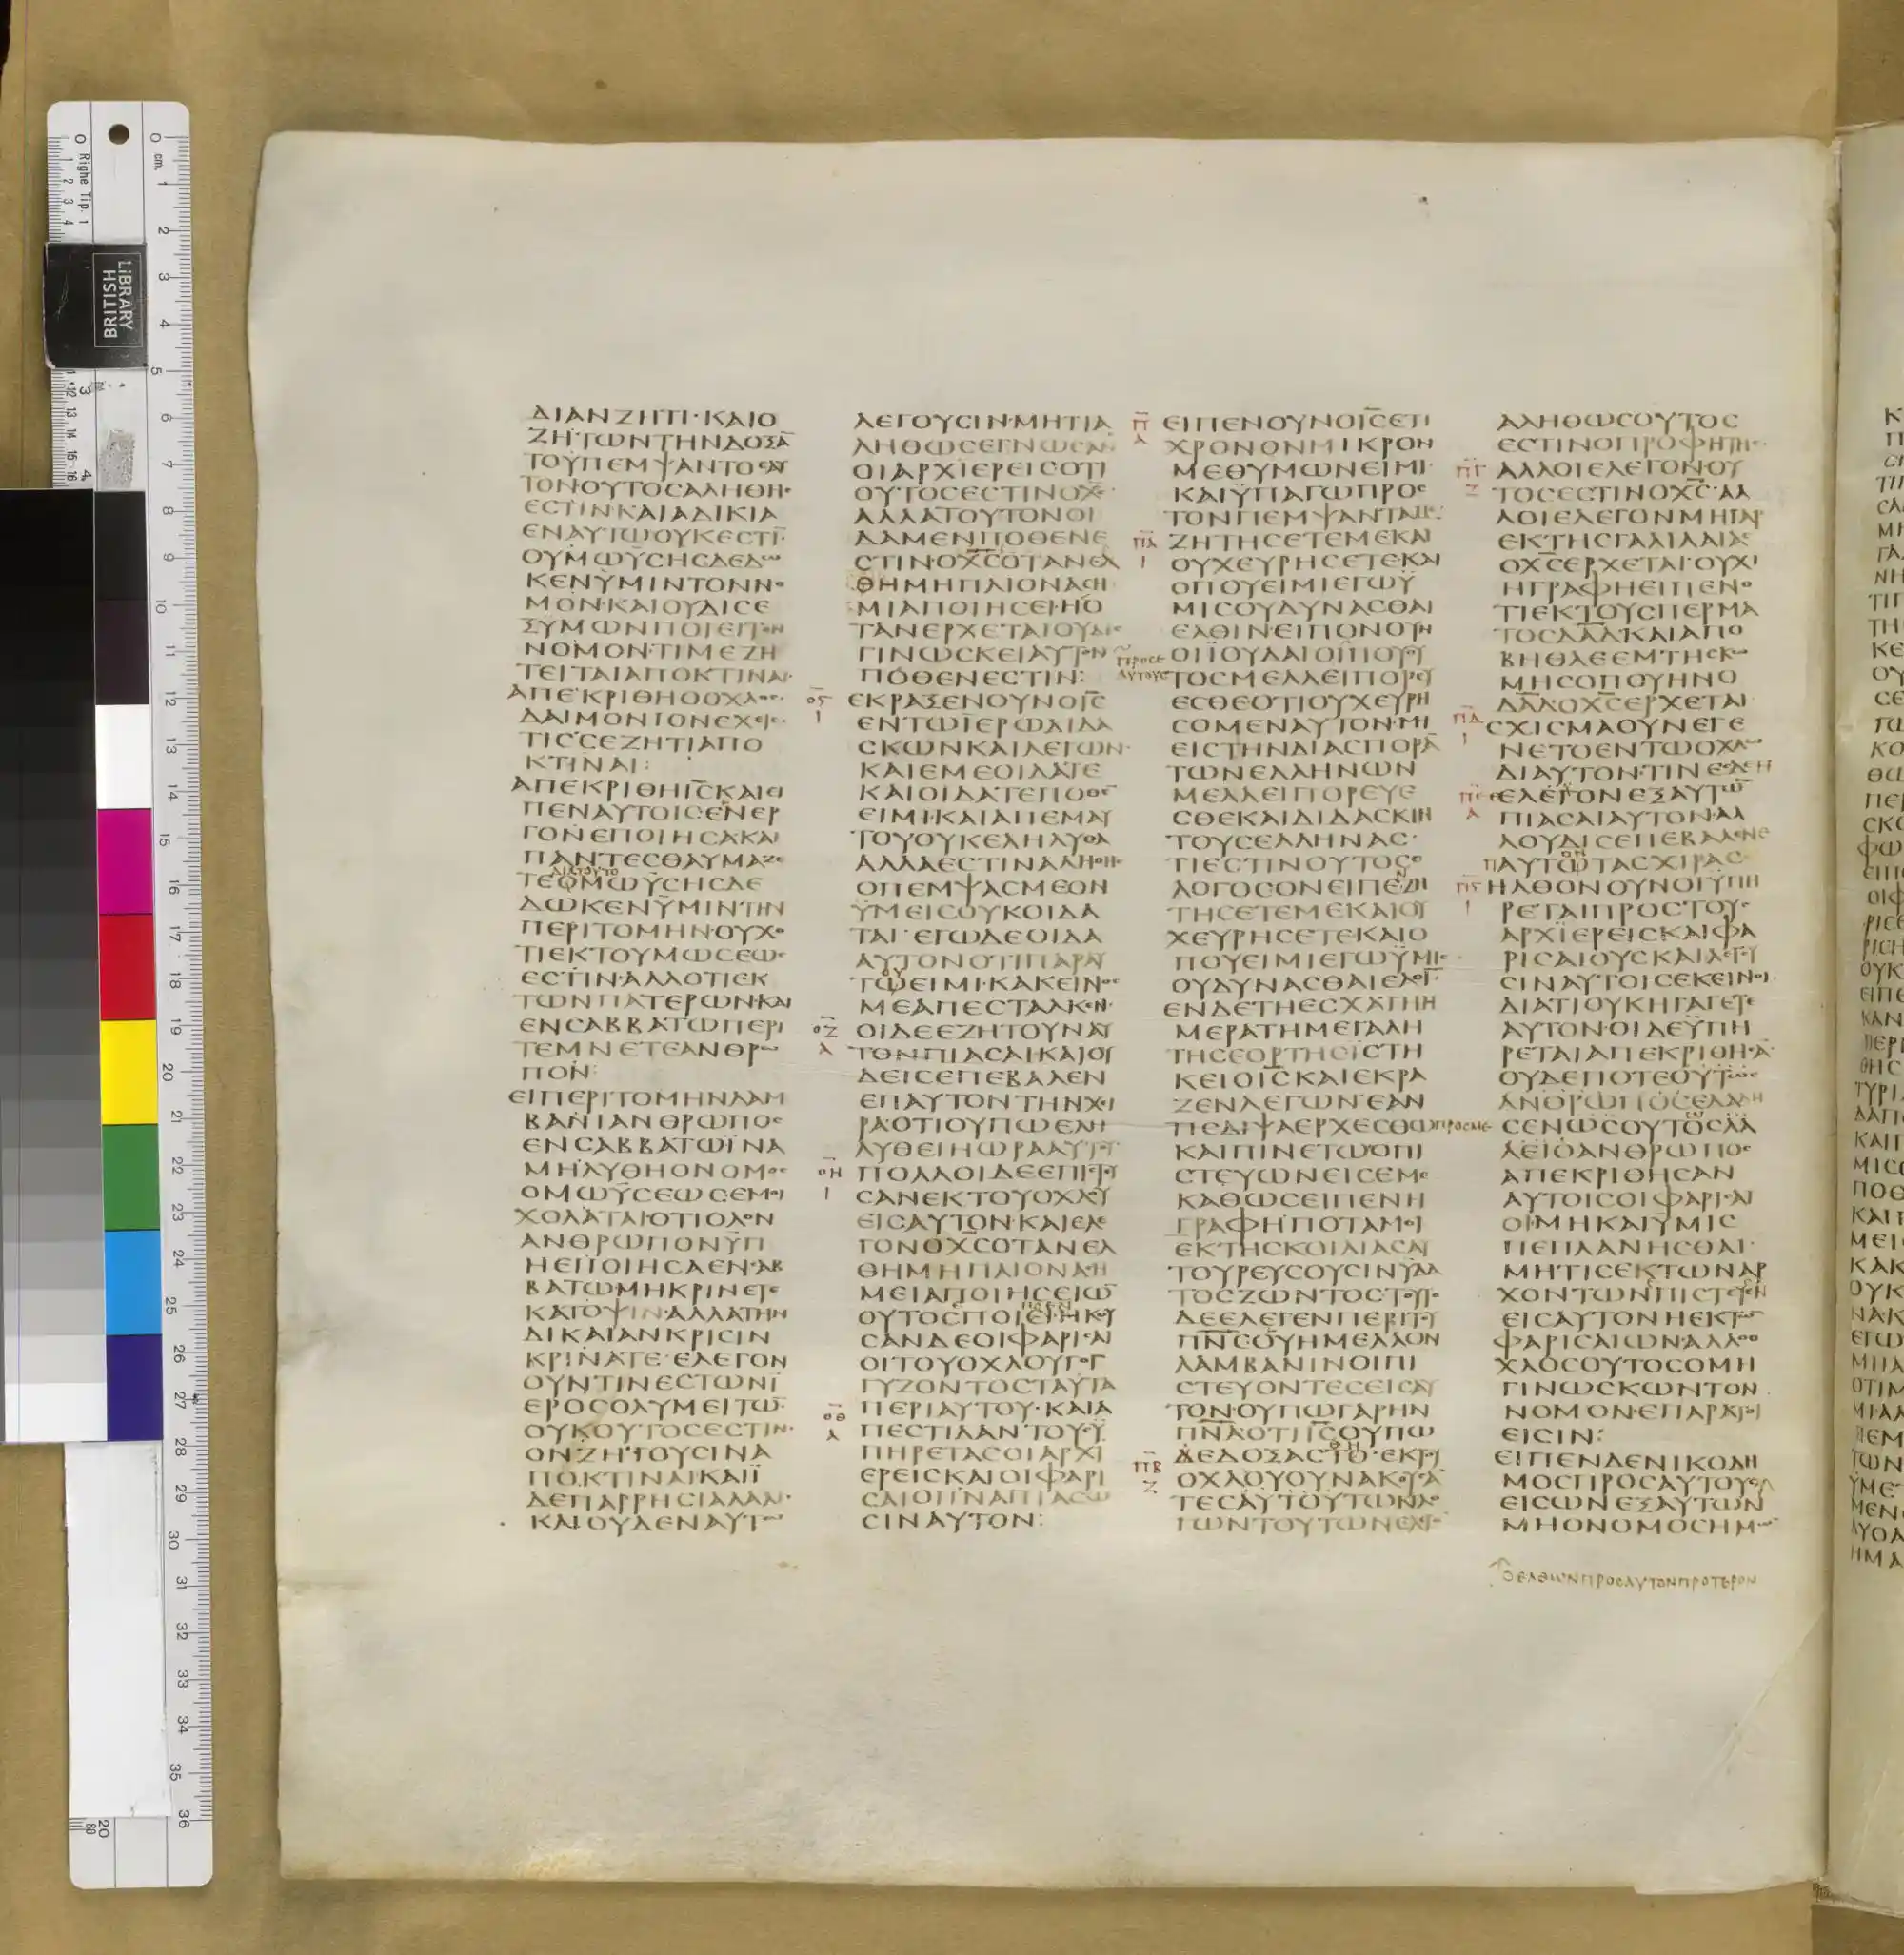 ΔΙΑΝΖΗΤΙ·ΚΑΙΟ
ΖΗΤΩΝΤΗΝΔΟΞΑ̅
ΤΟΥΠΕΜΨΑΝΤΟΣΑΥ
ΤΟΝΟΥΤΟΣΑΛΗΘΗΣ
ΕΣΤΙΝ·ΚΑΙΑΔΙΚΙΑ
ΕΝΑΥΤΩΟΥΚΕΣΤΙ̅
ΟΥΜΩΫΣΗΣΔΕΔΩ
ΚΕΝΫΜΙΝΤΟΝΝΟ
ΜΟΝ·ΚΑΙΟΥΔΙΣΕ
ΞΥΜΩΝΠΟΙΕΙΤΟΝ
ΝΟΜΟΝ·ΤΙΜΕΖΗ
ΤΕΙΤΑΙΑΠΟΚΤΙΝΑΙ·
ΑΠΕΚΡΙΘΗΟΟΧΛΟΣ·
ΔΑΙΜΟΝΙΟΝΕΧΕΙΣ·
ΤΙΣΣΕΖΗΤΙΑΠΟ
ΚΤΙΝΑΙ:
ΑΠΕΚΡΙΘΗΙ̅Σ̅ΚΑΙΕΙ
ΠΕΝΑΥΤΟΙΣΕΝΕΡ
ΓΟΝΕΠΟΙΗΣΑΚΑΙ
ΠΑΝΤΕΣΘΑΥΜΑΖΕ
ΔΙΑΤΟΥΤΟ
ΤΕΟΜΩΫΣΗΣΔΕ
ΔΩΚΕΝΫΜΙΝΤΗΝ
ΠΕΡΙΤΟΜΗΝ·ΟΥΧΟ
ΤΙΕΚΤΟΥΜΩΣΕΩΣ
ΕΣΤΙΝ·ΑΛΛΟΤΙΕΚ
ΤΩΝΠΑΤΕΡΩΝ·ΚΑΙ
ΕΝΣΑΒΒΑΤΩΠΕΡΙ
ΤΕΜΝΕΤΕΑΝΘΡΩ
ΠΟΝ:
ΕΙΠΕΡΙΤΟΜΗΝΛΑΜ
ΒΑΝΙΑΝΘΡΩΠΟΣ
ΕΝΣΑΒΒΑΤΩΪΝΑ
ΜΗΛΥΘΗΟΝΟΜΟΣ
ΟΜΩΫΣΕΩΣΕΜΟΙ
ΧΟΛΑΤΑΙ·ΟΤΙΟΛΟΝ
ΑΝΘΡΩΠΟΝΫΓΙ
ΗΕΠΟΙΗΣΑΕΝΣΑΒ
ΒΑΤΩΜΗΚΡΙΝΕΤΕ
ΚΑΤΟΨΙΝ·ΑΛΛΑΤΗΝ
ΔΙΚΑΙΑΝΚΡΙΣΙΝ
ΚΡΙΝΑΤΕ·ΕΛΕΓΟΝ
ΟΥΝΤΙΝΕΣΤΩΝΪ
ΕΡΟΣΟΛΥΜΕΙΤΩ̅
ΟΥΚΟΥΤΟΣΕΣΤΙΝ·
ΟΝΖΗΤΟΥΣΙΝΑ
ΠΟΚΤΙΝΑΙ·ΚΑΙΪ
ΔΕΠΑΡΡΗΣΙΑΛΑΛΙ·
ΚΑΙΟΥΔΕΝΑΥΤΩ
ΛΕΓΟΥΣΙΝ·ΜΗΤΙΑ
ΛΗΘΩΣΕΓΝΩΣΑΝ
ΟΙΑΡΧΙΕΡΕΙΣΟΤΙ
ΟΥΤΟΣΕΣΤΙΝΟΧ̅Σ̅·
ΑΛΛΑΤΟΥΤΟΝΟΙ
ΔΑΜΕΝΠΟΘΕΝΕ
ΣΤΙΝ·ΟΧ̅Σ̅ΟΤΑΝΕΛ
ΘΗΜΗΠΛΙΟΝΑΣΗ
ΜΙΑΠΟΙΗΣΕΙ·ΗΟ
ΤΑΝΕΡΧΕΤΑΙΟΥΔΙΣ
ΓΙΝΩΣΚΕΙΑΥΤΟΝ
ΠΟΘΕΝΕΣΤΙΝ:
ΟϚ
Ι
ΕΚΡΑΞΕΝΟΥΝΟΙ̅Σ̅
ΕΝΤΩΪΕΡΩΔΙΔΑ
ΣΚΩΝΚΑΙΛΕΓΩΝ·
ΚΑΙΕΜΕΟΙΔΑΤΕ
ΚΑΙΟΙΔΑΤΕΠΟΘΕΝ
ΕΙΜΙ·ΚΑΙΑΠΕΜΑΥ
ΤΟΥΟΥΚΕΛΗΛΥΘΑ
ΑΛΛΑΕΣΤΙΝΑΛΗΘΗΣ
ΟΠΕΜΨΑΣΜΕΟΝ
ΫΜΕΙΣΟΥΚΟΙΔΑ
ΤΑΙ·ΕΓΩΔΕΟΙΔΑ
ΑΥΤΟΝΟΤΙΠΑΡΑΥ
ΤΩΕΙΜΙ·ΚΑΚΕΙΝΟΣ
ΜΕΑΠΕΣΤΑΛΚΕΝ·
ΟΖ
Α
ΟΙΔΕΕΖΗΤΟΥΝΑΥ
ΤΟΝΠΙΑΣΑΙΚΑΙΟΥ
ΔΕΙΣΕΠΕΒΑΛΕΝ
ΕΠΑΥΤΟΝΤΗΝΧΙ
ΡΑΟΤΙΟΥΠΩΕΛΗ
ΛΥΘΕΙΗΩΡΑΑΥΤΟΥ
ΟΗ
Ι
ΠΟΛΛΟΙΔΕΕΠΙΣΤΥ
ΣΑΝΕΚΤΟΥΟΧΛΟΥ
ΕΙΣΑΥΤΟΝ·ΚΑΙΕΛΕ
ΓΟΝΟΧ̅Σ̅ΟΤΑΝΕΛ
ΘΗΜΗΠΛΙΟΝΑΣΗ
ΜΕΙΑΠΟΙΗΣΕΙΩ̅
ΟΥΤΟΣΠΟΙΕΙ·ΗΚΟΥ
ΣΑΝΔΕΟΙΦΑΡΙΣΑΙ
ΟΙΤΟΥΟΧΛΟΥΓΟΓ
ΓΥΖΟΝΤΟΣΤΑΥΤΑ
ΟΘ
Α
ΠΕΡΙΑΥΤΟΥ·ΚΑΙΑ
ΠΕΣΤΙΛΑΝΤΟΥΣΫ
ΠΗΡΕΤΑΣΟΙΑΡΧΙ
ΕΡΕΙΣΚΑΙΟΙΦΑΡΙ
ΣΑΙΟΙΪΝΑΠΙΑΣΩ
ΣΙΝΑΥΤΟΝ:
Π
Α
ΕΙΠΕΝΟΥΝΟΙ̅Σ̅ΕΤΙ
ΧΡΟΝΟΝΜΙΚΡΟΝ
ΜΕΘΥΜΩΝΕΙΜΙ·
ΚΑΙΫΠΑΓΩΠΡΟΣ
ΤΟΝΠΕΜΨΑΝΤΑΜΕ·
ΠΑ
Ι
ΖΗΤΗΣΕΤΕΜΕΚΑΙ
ΟΥΧΕΥΡΗΣΕΤΕΚΑΙ
ΟΠΟΥΕΙΜΙΕΓΩΫ
ΜΙΣΟΥΔΥΝΑΣΘΑΙ
ΕΛΘΙΝ·ΕΙΠΟΝΟΥΝ
ΠΡΟΣΕ
ΑΥΤΟΥΣ
ΟΙΪΟΥΔΑΙΟΙΠΟΥΟΥ
ΤΟΣΜΕΛΛΕΙΠΟΡΕΥ
ΕΣΘΕΟΤΙΟΥΧΕΥΡΗ
ΣΟΜΕΝΑΥΤΟΝ·ΜΗ
ΕΙΣΤΗΝΔΙΑΣΠΟΡΑ̅
ΤΩΝΕΛΛΗΝΩΝ
ΜΕΛΛΕΙΠΟΡΕΥΕ
ΣΘΕΚΑΙΔΙΔΑΣΚΙΝ
ΤΟΥΣΕΛΛΗΝΑΣ·
ΤΙΕΣΤΙΝΟΥΤΟΣΟ
ΛΟΓΟΣΟΝΕΙΠΕΖΗ
ΤΗΣΕΤΕΜΕΚΑΙΟΥ
ΧΕΥΡΗΣΕΤΕΚΑΙΟ
ΠΟΥΕΙΜΙΕΓΩΫΜΙΣ
ΟΥΔΥΝΑΣΘΑΙΕΛΘΙ̅·
ΕΝΔΕΤΗΕΣΧΑΤΗΗ
ΜΕΡΑΤΗΜΕΓΑΛΗ
ΤΗΣΕΟΡΤΗΣΪΣΤΗ
ΚΕΙΟΙ̅Σ̅ΚΑΙΕΚΡΑ
ΖΕΝΛΕΓΩΝ·ΕΑΝ
ΤΙΣΔΙΨΑΕΡΧΕΣΘΩ
ΠΡΟΣΜΕ
ΚΑΙΠΙΝΕΤΩΟΠΙ
ΣΤΕΥΩΝΕΙΣΕΜΕ
ΚΑΘΩΣΕΙΠΕΝΗ
ΓΡΑΦΗΠΟΤΑΜΟΙ
ΕΚΤΗΣΚΟΙΛΙΑΣΑΥ
ΤΟΥΡΕΥΣΟΥΣΙΝΫΔΑ
ΤΟΣΖΩΝΤΟΣ·ΤΟΥΤΟ
ΔΕΕΛΕΓΕΝΠΕΡΙΤΟΥ
Π̅Ν̅Σ̅ΟΥΗΜΕΛΛΟΝ
ΛΑΜΒΑΝΙΝΟΙΠΙ
ΣΤΕΥΟΝΤΕΣΕΙΣΑΥ
ΤΟΝ·ΟΥΠΩΓΑΡΗΝ
Π̅Ν̅Α̅ΟΤΙΙ̅Σ̅ΟΥΠΩ
ΔΕΔΟΞΑΣΤΟ·ΕΚΤΟΥ
ΠΒ
Ζ
ΟΧΛΟΥΟΥΝΑΚΟΥΣΑ̅
ΤΕΣΑΥΤΟΥΤΩΝΛΟ
ΓΩΝΤΟΥΤΩΝΕΛΕΓΟ̅
ΑΛΗΘΩΣΟΥΤΟΣ
ΕΣΤΙΝΟΠΡΟΦΗΤΗΣ·
ΠΓ
Ζ
ΑΛΛΟΙΕΛΕΓΟΝΟΥ
ΤΟΣΕΣΤΙΝΟΧ̅Σ̅·ΑΛ
ΛΟΙΕΛΕΓΟΝΜΗΓΑΡ
ΕΚΤΗΣΓΑΛΙΛΑΙΑΣ
ΟΧ̅Σ̅ΕΡΧΕΤΑΙ·ΟΥΧΙ
ΗΓΡΑΦΗΕΙΠΕΝΟ
ΤΙΕΚΤΟΥΣΠΕΡΜΑ
ΤΟΣΔΑΔΚΑΙΑΠΟ
ΒΗΘΛΕΕΜΤΗΣΚΩ
ΜΗΣΟΠΟΥΗΝΟ
ΔΑΔΟΧ̅Σ̅ΕΡΧΕΤΑΙ
ΠΔ
Ι
ΣΧΙΣΜΑΟΥΝΕΓΕ
ΝΕΤΟΕΝΤΩΟΧΛΩ
ΔΙΑΥΤΟΝ·ΤΙΝΕΣΔΕ
ΠΕ
Α
ΕΛΕΓΟΝΕΞΑΥΤΩ̅
ΠΙΑΣΑΙΑΥΤΟΝ·ΑΛ
ΛΟΥΔΙΣΕΠΕΒΑΛΕΝΕ
ΠΑΥΤΩΤΑΣΧΙΡΑΣ·
ΠϚ
Ι
ΗΛΘΟΝΟΥΝΟΙΫΠΗ
ΡΕΤΑΙΠΡΟΣΤΟΥΣ
ΑΡΧΙΕΡΕΙΣΚΑΙΦΑ
ΡΙΣΑΙΟΥΣΚΑΙΛΕΓΟΥ
ΣΙΝΑΥΤΟΙΣΕΚΕΙΝΟΙ·
ΔΙΑΤΙΟΥΚΗΓΑΓΕΤΕ
ΑΥΤΟΝ·ΟΙΔΕΫΠΗ
ΡΕΤΑΙΑΠΕΚΡΙΘΗΣΑ̅
ΟΥΔΕΠΟΤΕΟΥΤΩΣ
ΑΝΘΡΩΠΟΣΕΛΑΛΗ
ΣΕΝΩΣΟΥΤΟΣΛΑ
ΛΕΙΟΑΝΘΡΩΠΟΣ
ΑΠΕΚΡΙΘΗΣΑΝ
ΑΥΤΟΙΣΟΙΦΑΡΙΣΑΙ
ΟΙ·ΜΗΚΑΙΫΜΙΣ
ΠΕΠΛΑΝΗΣΘΑΙ·
ΜΗΤΙΣΕΚΤΩΝΑΡ
ΧΟΝΤΩΝΠΙΣΤΕΥΕΙ
ΕΙΣΑΥΤΟΝΗΕΚΤΩ̅
ΦΑΡΙΣΑΙΩΝ·ΑΛΛΟΟ
ΧΛΟΣΟΥΤΟΣΟΜΗ
ΓΙΝΩΣΚΩΝΤΟΝ
ΝΟΜΟΝ·ΕΠΑΡΑΤΟΙ
ΕΙΣΙΝ:
ΕΙΠΕΝΔΕΝΙΚΟΔΗ
ΜΟΣΠΡΟΣΑΥΤΟΥΣ
ΕΙΣΩΝΕΞΑΥΤΩΝ
ΜΗΟΝΟΜΟΣΗΜΩ̅
ΟΕΛΘΩΝΠΡΟΣΑΥΤΟΝΠΡΟΤΕΡΟΝ
BRITISH
LIBRARY
cm.
Righe Tip. 1